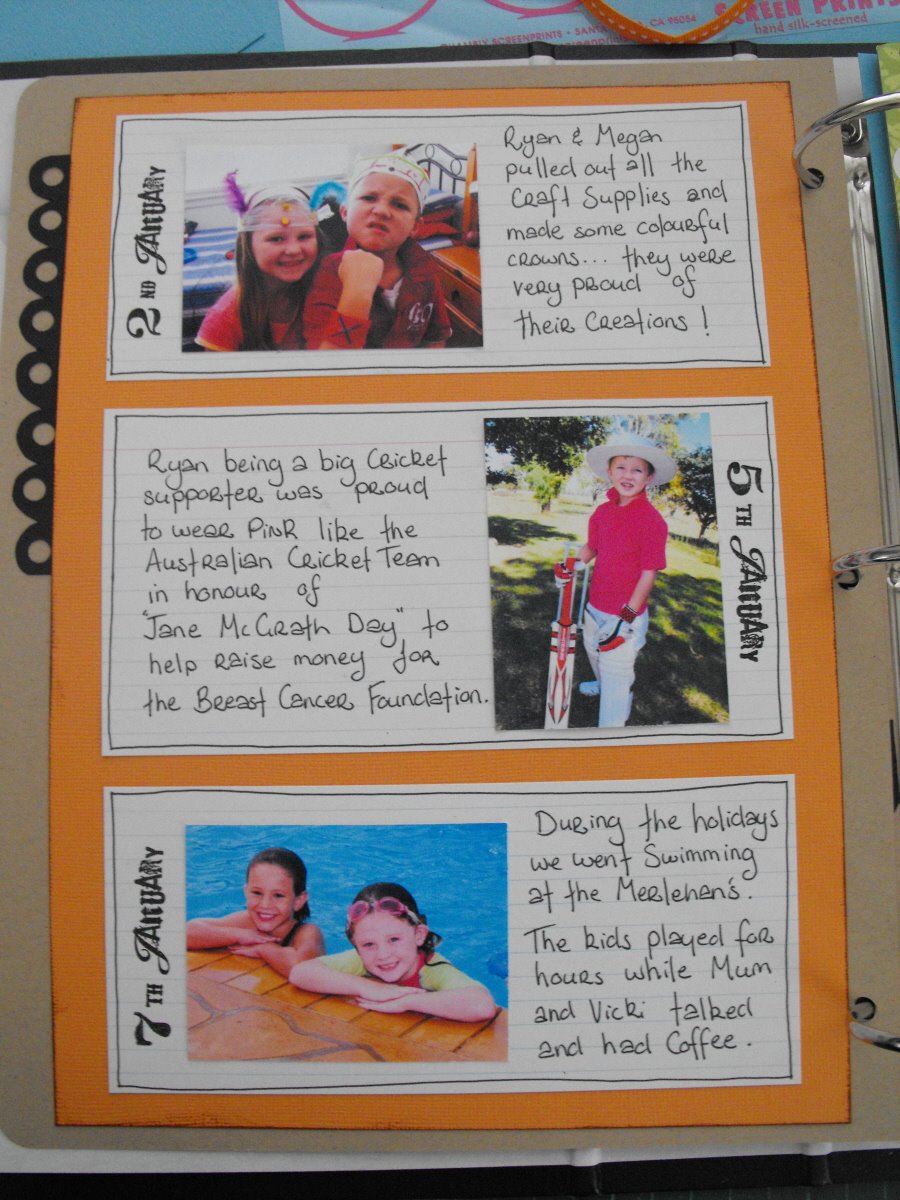 CA 95054
SCREEN PRINTS
hand silk-screened
SCREENPRINTS •
2ND JANUARY
Ryan & Megan
pulled out all the
Craft Supplies and
made some colourful
crowns... they were
very proud of
their Creations!
Ryan being a big Cricket
supporter was proud
to wear Pink like the
Australian Cricket Team
in honour of
"Jane McGrath Day", to
help raise money for
the Breast Cancer Foundation.
5TH JANUARY
7TH JANUARY
During the holidays
we went Swimming
at the Merlehan's.
The kids played for
hours while Mum
and Vicki talked
and had Coffee.